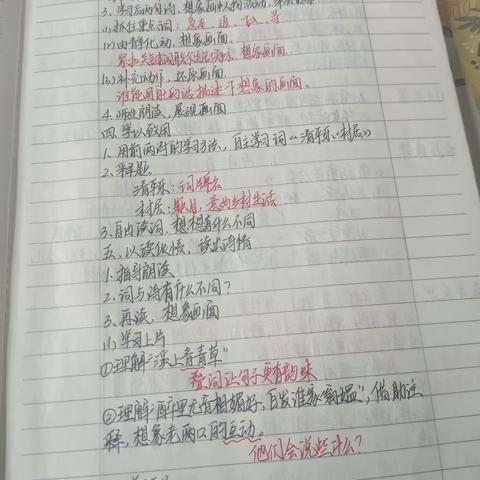 3、学习后两句诗，想象画中人物活动，
(1)抓住重点词：急走、追、飞入、寻
(2)由静化动，想象画面
想象画面。
(3)补充动作，还原画面
谁能用自己的话描述下想象的画面。
4、师生朗读，展现画面
四、学以致用
1、用前两诗的学习方法，自主学习词《清平乐·村居》
2、释题
清平乐：词牌名
村居：题目，意为乡村生活
3、自由读词，想想有什么不同
五、以读促悟，读出诗情
1、指导朗读
2、词与诗有什么不同？
3、再读，想象画面
(1)学习上片
①理解“溪上青青草”
叠词让句子更有韵味
②理解“醉里吴音相媚好，白发谁家翁媪”，借助注
释，想象老两口的互动。
他们会说些什么？